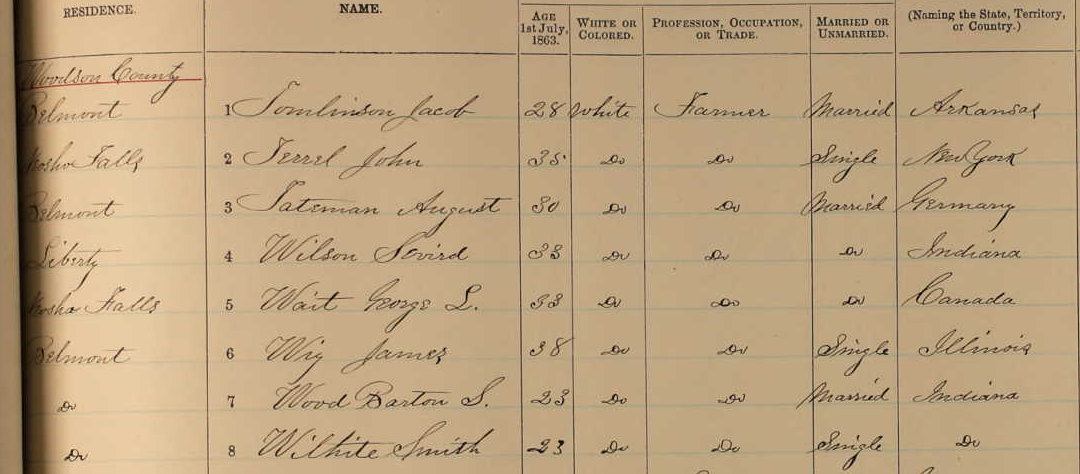 RESIDENCE. NAME. AGE 1st July, 1863. WHITE OR COLORED. PROFESSION, OCCUPATION, OR TRADE. MARRIED OR UNMARRIED. (Naming the State, Territory, or Country.)
Woodson County
Belmont 1 Tomlinson Jacob 28 White Farmer Married Arkansas
Neosho Falls 2 Terrel John 35 Do Do Single New York
Belmont 3 Tateman August 30 Do Do Married Germany
Liberty 4 Wilson 33 Do Do Do Indiana
Neosho Falls 5 Wait George L. 33 Do Do Do Canada
Belmont 6 Wig James 38 Do Do Single Illinois
Do 7 Wood Barton S. 23 Do Do Married Indiana
Do 8 Wilhite Smith 23 Do Do Single Do